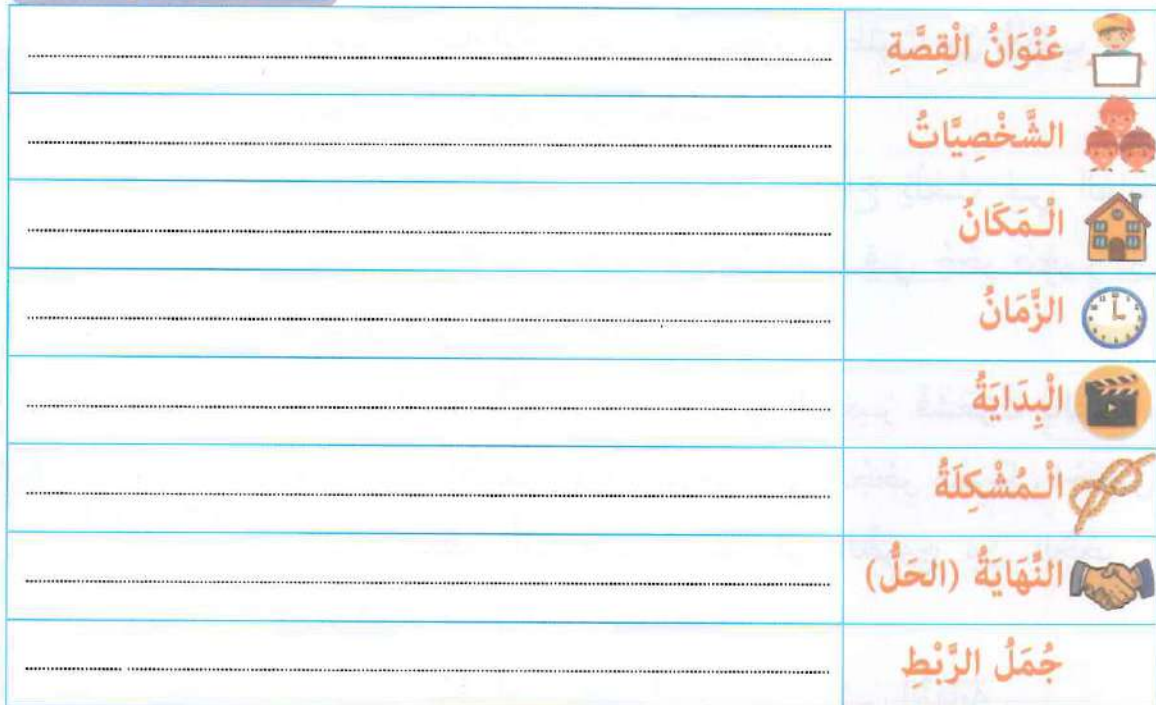 عُنْوَانُ الْقِصَّةِ
الشَّخْصِيَّاتُ
الْمَكَانُ
الزَّمَانُ
الْبِدَايَةُ
الْمُشْكِلَةُ
النِّهَايَةُ (الحَلُّ)
جُمَلُ الرَّبْطِ